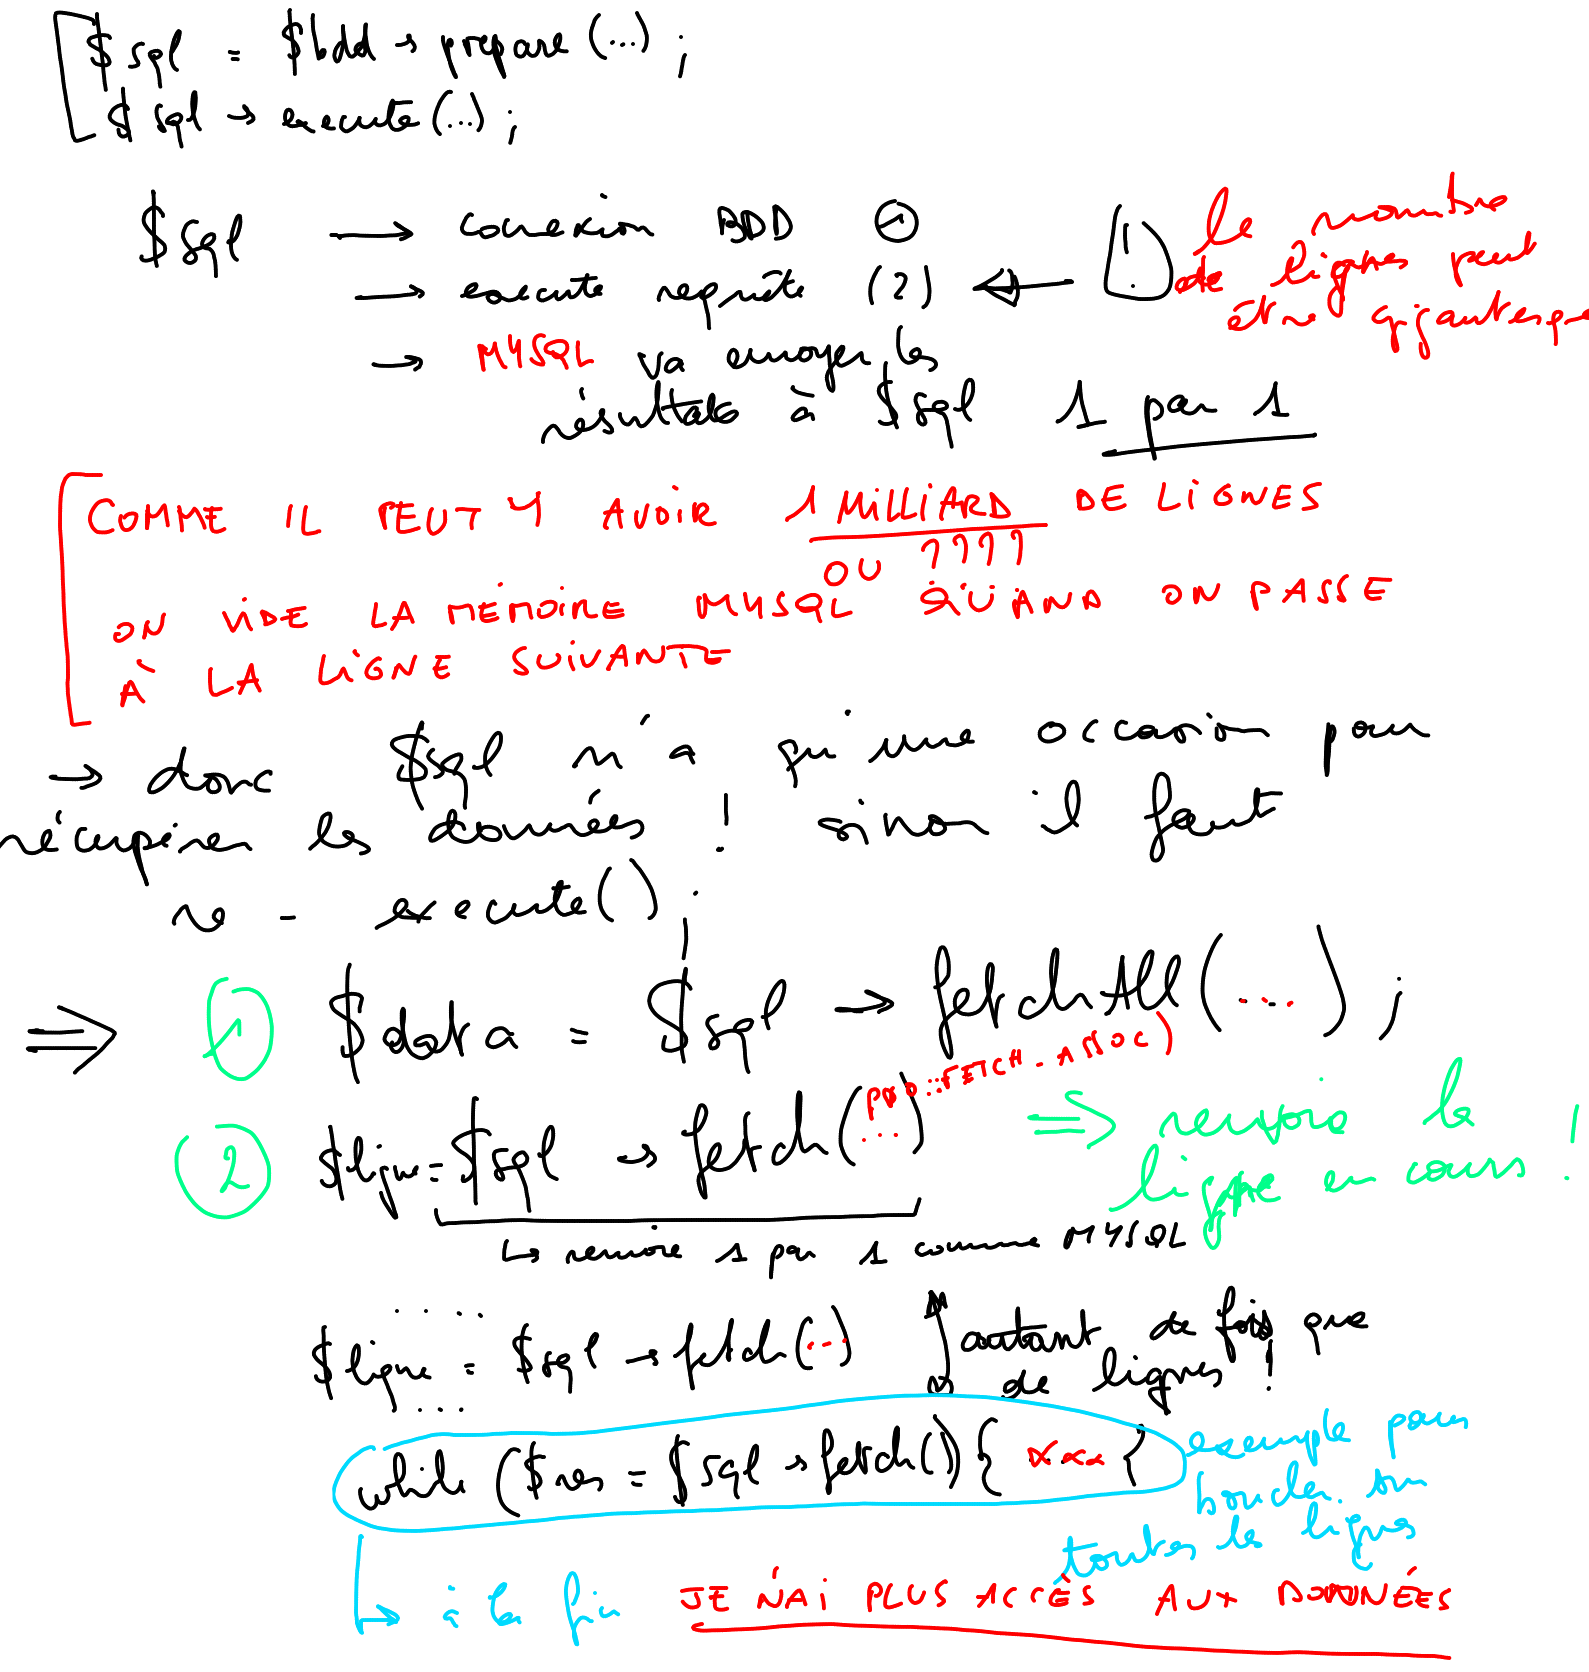 $sql = $bdd → prepare (...) ;
$sql → execute (...) ;
$sql → conexion BDD ①
→ execute requête (2) ⇐ ! le nombre
de lignes peut
être gigantesque
→ MYSQL va envoyer les
résultats à $sql 1 par 1
COMME IL PEUT Y AVOIR 1 MILLIARD DE LIGNES
OU ????
ON VIDE LA MÉMOIRE MYSQL QUAND ON PASSE
À LA LIGNE SUIVANTE
→ donc $sql n'a qu'une occasion pour
récupérer les données ! sinon il faut
re - execute() ;
⇒ 1 $data = $sql → fetchAll(...) ;
PDO::FETCH_ASSOC)
2 $ligne = $sql → fetch(...) ⇒ renvoie la
ligne en cours !
↳ renvoie 1 par 1 comme MYSQL
....
$ligne = $sql → fetch(...) autant de fois que
.... de lignes !
while ($res = $sql → fetch()) { xxx } exemple pour
boucler sur
toutes les lignes
↳ à la fin JE N'AI PLUS ACCÈS AUX DONNÉES